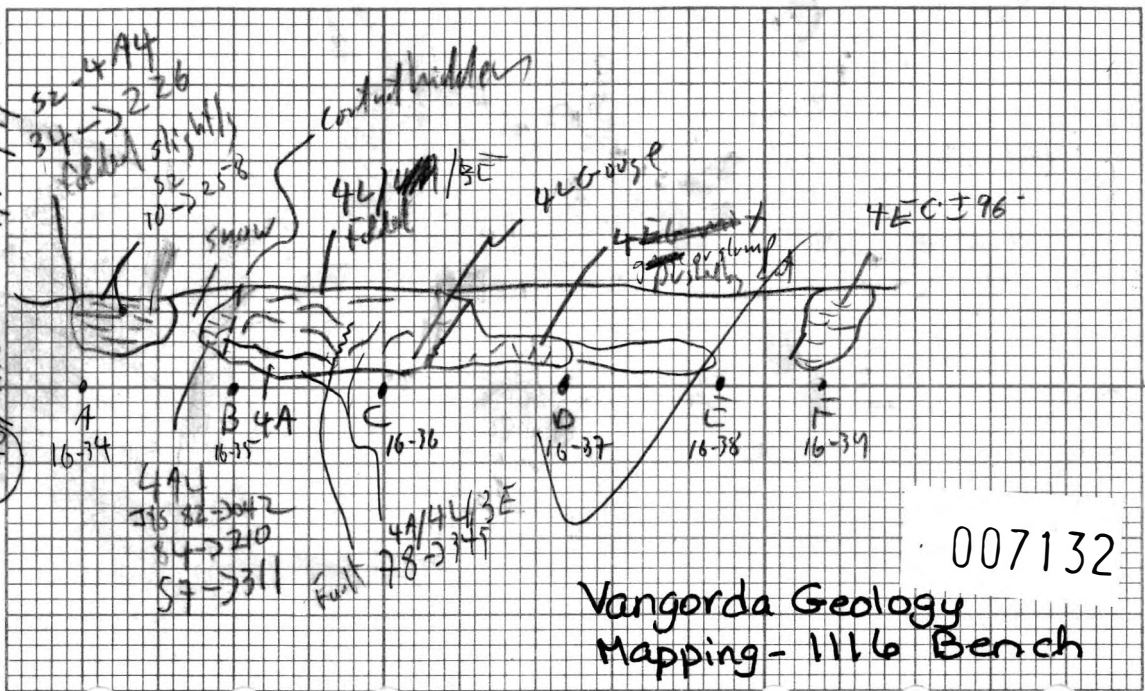 S2 - 4A4
34 -> 226
folded slightly
S2
70 -> 258
snow
contact hidden
4L/ /3E
folded
4L Gouge
or slump
4EC ± 96
A
16-34
B
16-35
4A
C
16-36
D
16-37
E
16-38
F
16-39
4A4
Jts 82->042
84->210
57->311
Fault
4A/4L/3E
78->345
007132
Vangorda Geology
Mapping - 1116 Bench